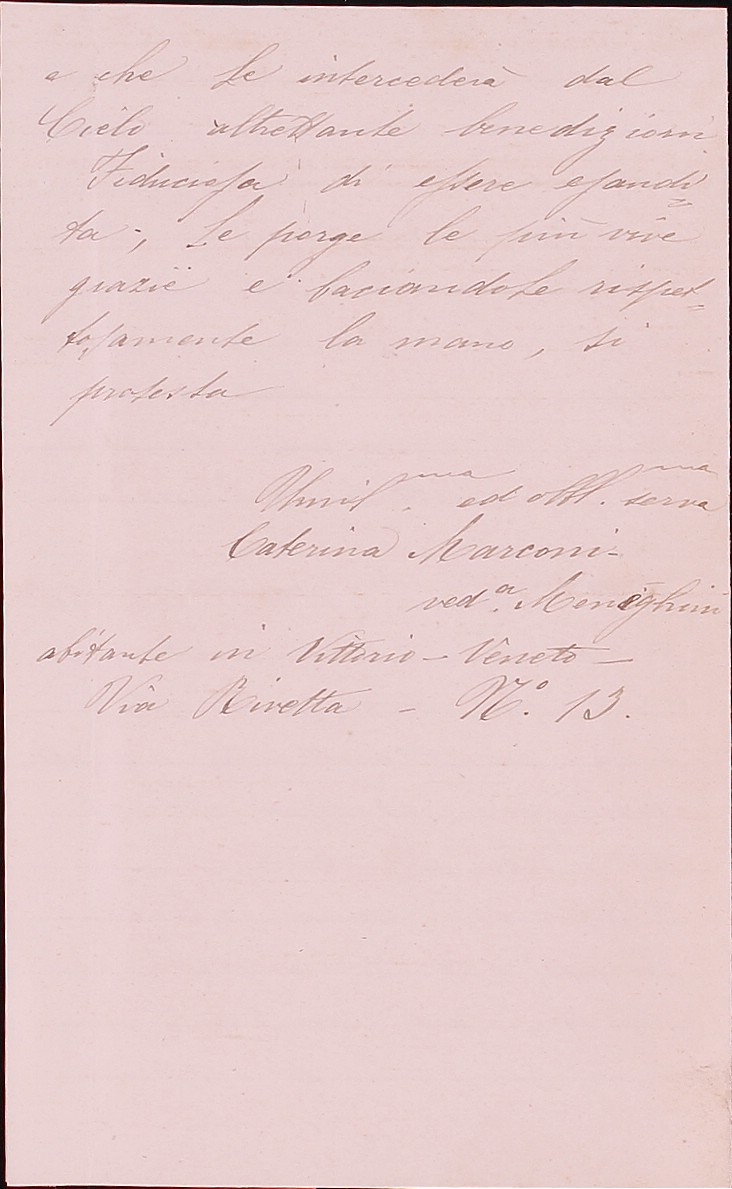 e che Le intercederà dal
Cielo altrettante benedizioni
Fiduciosa di essere esaudi=
ta, Le porge le più vive
grazie e baciandole rispet=
tosamente la mano, si
protesta
Umil.ma ed obbl.ma serva
Caterina Marconi-
ved.a Meneghini
abitante in Vittorio - Veneto -
Via Rivetta - N.o 13.